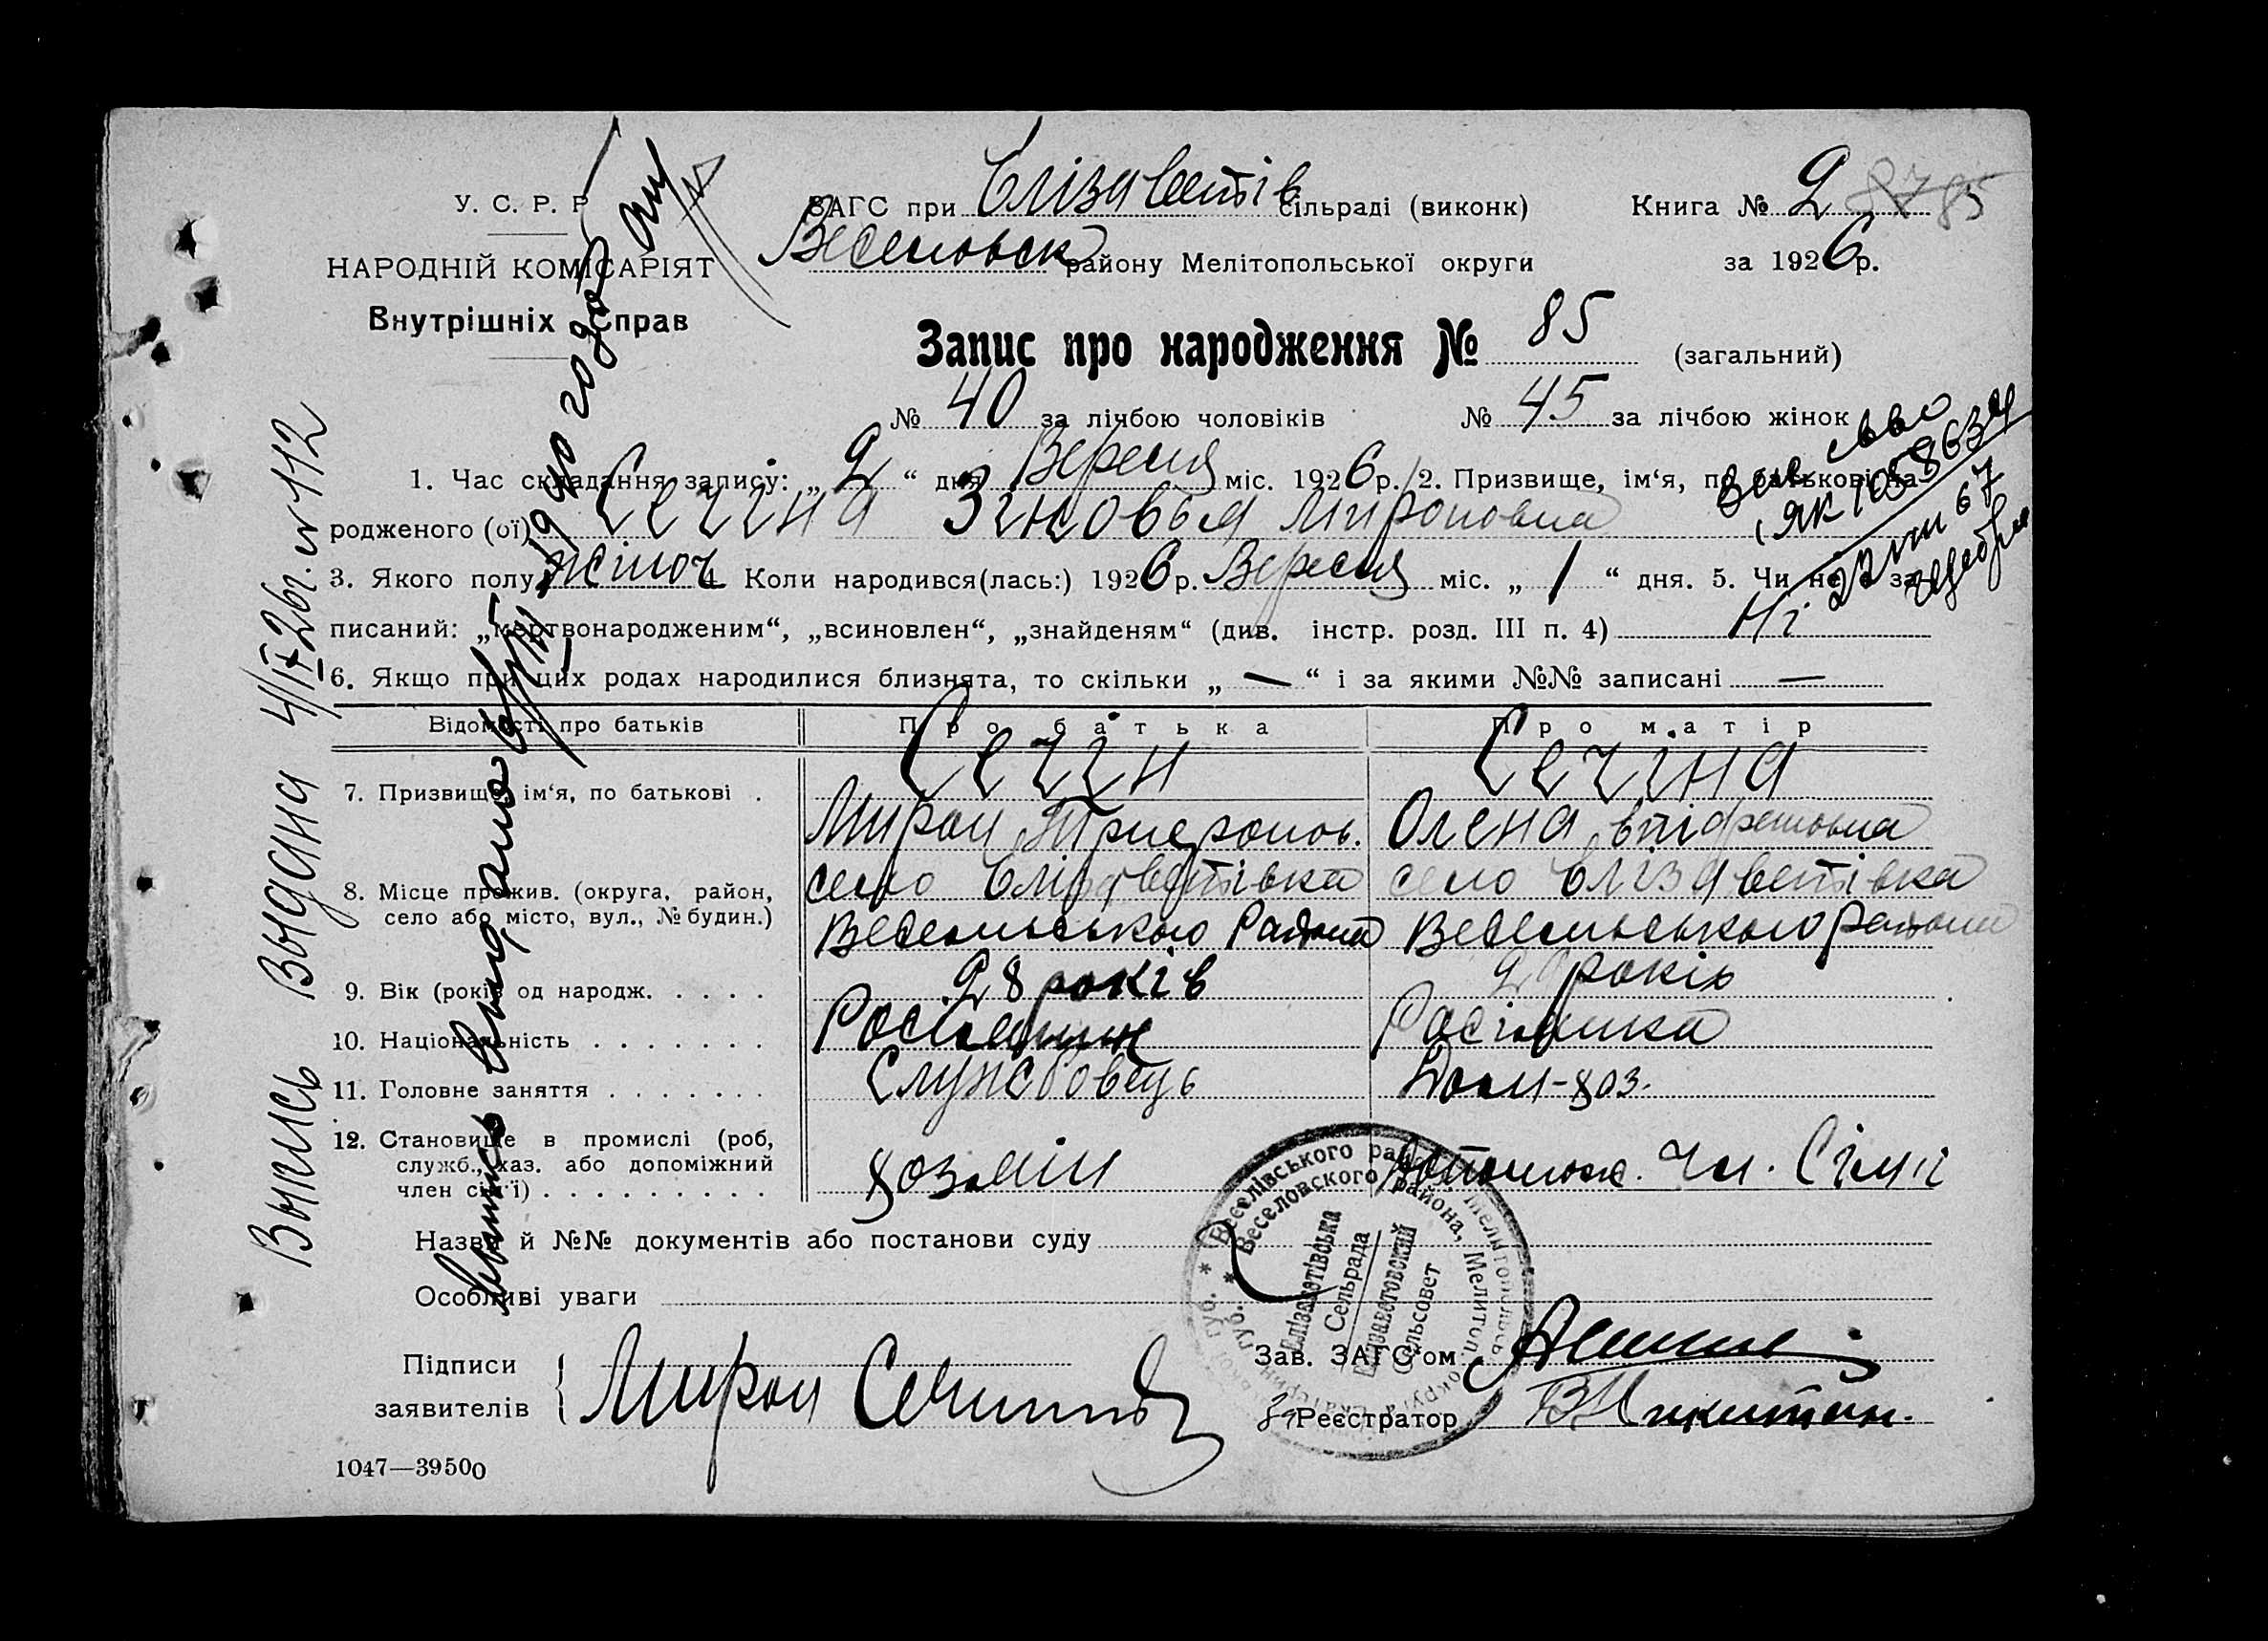 У. С. Р. Р.
НАРОДНІЙ КОМІСАРІЯТ
Внутрішніх Справ
ЗАГС при Єлізаветів сільраді (виконк)
Веселовск району Мелітопольської округи
Книга № 2 87 85
за 1926р.
Запис про народження № 85 (загальний)
№ 40 за лічбою чоловіків № 45 за лічбою жінок
1. Час складання запису: „2“ дня Вересня міс. 1926р. 2. Призвище, ім‘я, по батькові на
родженого (ої) Сечіна Зіновья Мироновна
3. Якого полу жіноч 4 Коли народився(лась:) 1926р. Вересня міс. „1“ дня. 5. Чи не є за
писаний: „мертвонародженим“, „всиновлен“, „знайденям“ (див. інстр. розд. III п. 4) Ні
6. Якщо при цих родах народилися близнята, то скільки „—“ і за якими №№ записані —
Відомості про батьків Про батька Про матір
7. Призвище, ім‘я, по батькові . Сечін Сечіна
Мирон Олена
8. Місце прожив. (округа, район, село або місто, вул., № будин.) село Єлізаветівка село Єлізаветівка
Весельського Района Весельського района
9. Вік (років од народж. . . . . 28 років років
10. Національність . . . . . . . Росіянин Росіянка
11. Головне заняття . . . . . . . Службовець Дом-хоз.
12. Становище в промислі (роб, служб., хаз. або допоміжний член сім‘ї) . . . . . . . . . хозяїн Допомож. чл. Сімії
Назви й №№ документів або постанови суду
Особливі уваги
Підписи
заявителів
Мирон Сечин
Зав. ЗАГС‘ом
Реєстратор В Никитин.
1047—39500
Выпись Выдана 4/IX 26г. № 112
Веселівського району, Мелітопольської округи
Веселовского района, Мелитоп.
Єлізаветівська
Сельрада
Елизаветовский
Сельсовет